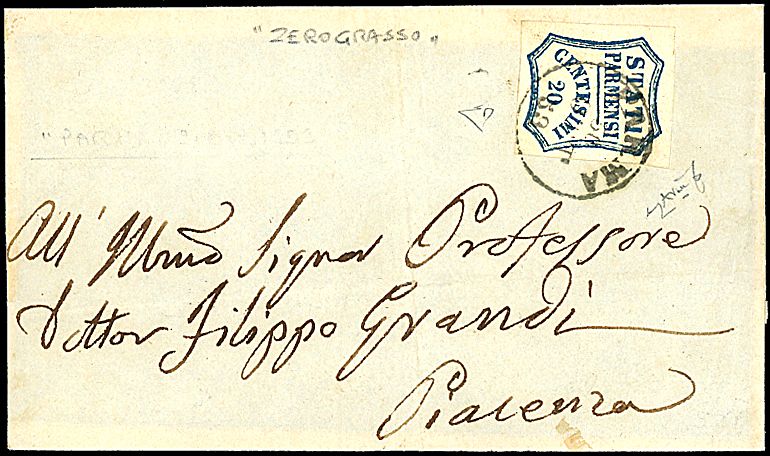 "ZEROGRASSO"
STATI
PARMENSI
20
CENTESIMI
All' Illmo Signor Professore
Dottor Filippo Grandi
Piacenza